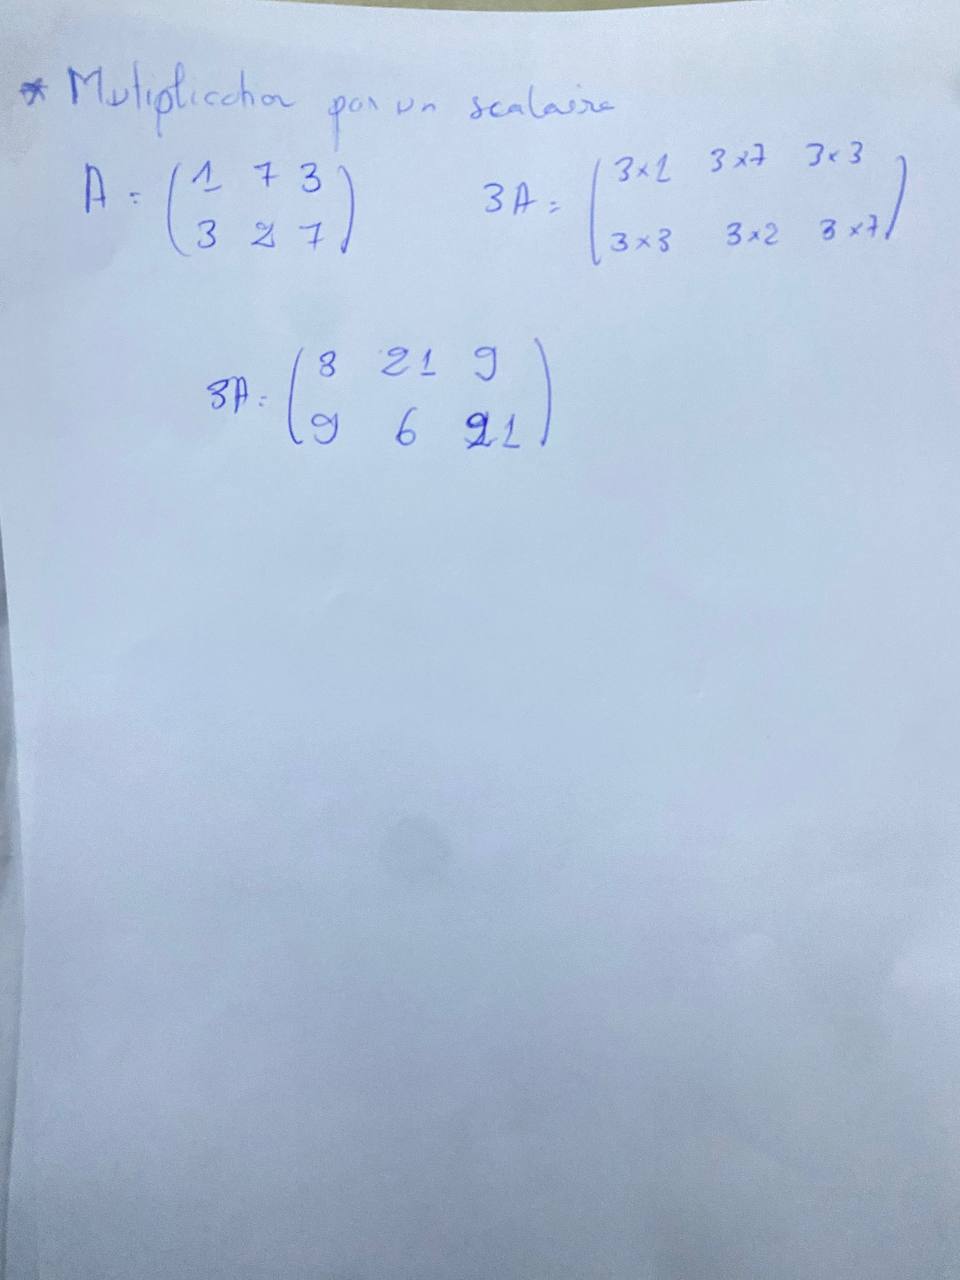 * Mutiplication par un scalaire
A = (1 7 3
3 2 7) 3A = (3×1 3×7 3×3
3×3 3×2 3×7)
3A = (3 21 9
9 6 21)